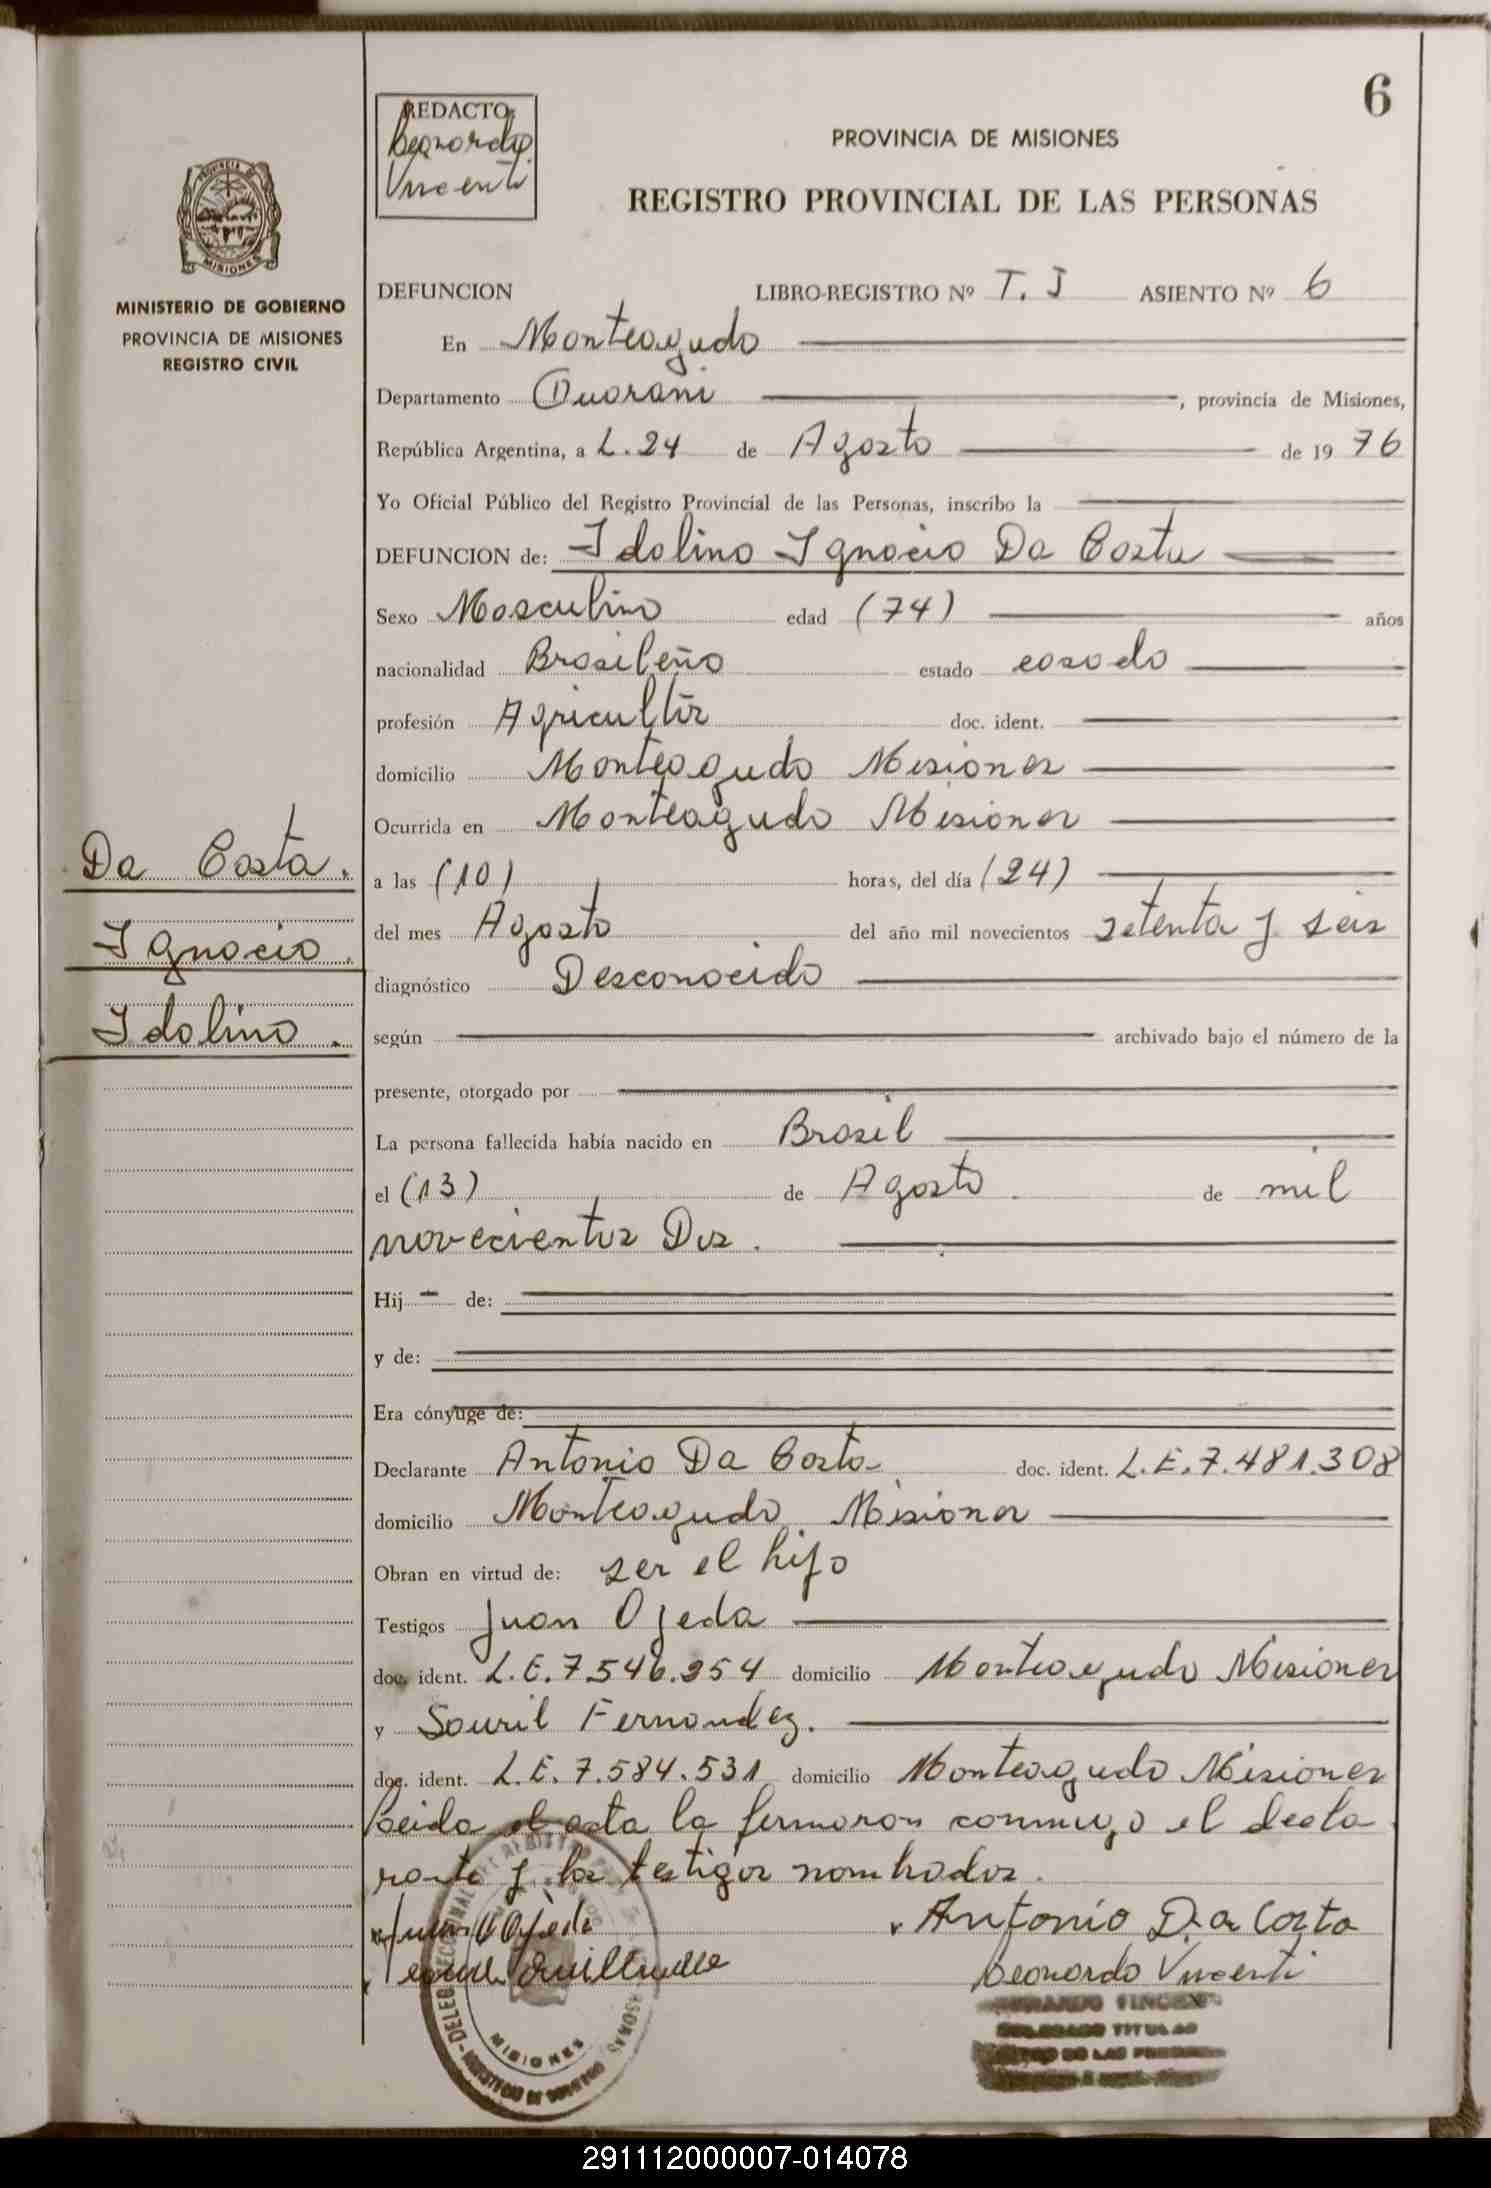 6
REDACTO:
Leonardo
Vincenti
PROVINCIA DE MISIONES
REGISTRO PROVINCIAL DE LAS PERSONAS
MISIONES
MINISTERIO DE GOBIERNO
PROVINCIA DE MISIONES
REGISTRO CIVIL
DEFUNCION LIBRO-REGISTRO Nº T. I ASIENTO Nº 6
En Monteagudo
Departamento Guarani, provincia de Misiones,
República Argentina, a L. 24 de Agosto de 1976
Yo Oficial Público del Registro Provincial de las Personas, inscribo la
DEFUNCION de: Idolino Ignacio Da Costa
Sexo Masculino edad (74) años
nacionalidad Brasileño estado casado
profesión Agricultor doc. ident.
domicilio Monteagudo Misiones
Ocurrida en Monteagudo Misiones
Da Costa.
Ignacio.
Idolino.
a las (10) horas, del día (24)
del mes Agosto del año mil novecientos setenta y seis
diagnóstico Desconocido
según archivado bajo el número de la
presente, otorgado por
La persona fallecida había nacido en Brasil
el (13) de Agosto de mil
novecientos Dos.
Hij - de:
y de:
Era cónyuge de:
Declarante Antonio Da Costa doc. ident. L.E.7.481.308
domicilio Monteagudo Misiones
Obran en virtud de: ser el hijo
Testigos Juan Ojeda
doc. ident. L.E.7.546.254 domicilio Monteagudo Misiones
y Souril Fernandez.
doc. ident. L.E. 7.584.531 domicilio Monteagudo Misiones
Leida el acta la firmaron conmigo el decla
rante y los testigos nombrados.
Juan Ojeda Antonio Da Costa
Leonardo Vincenti
DELEGADO TITULAR
MISIONES
291112000007-014078